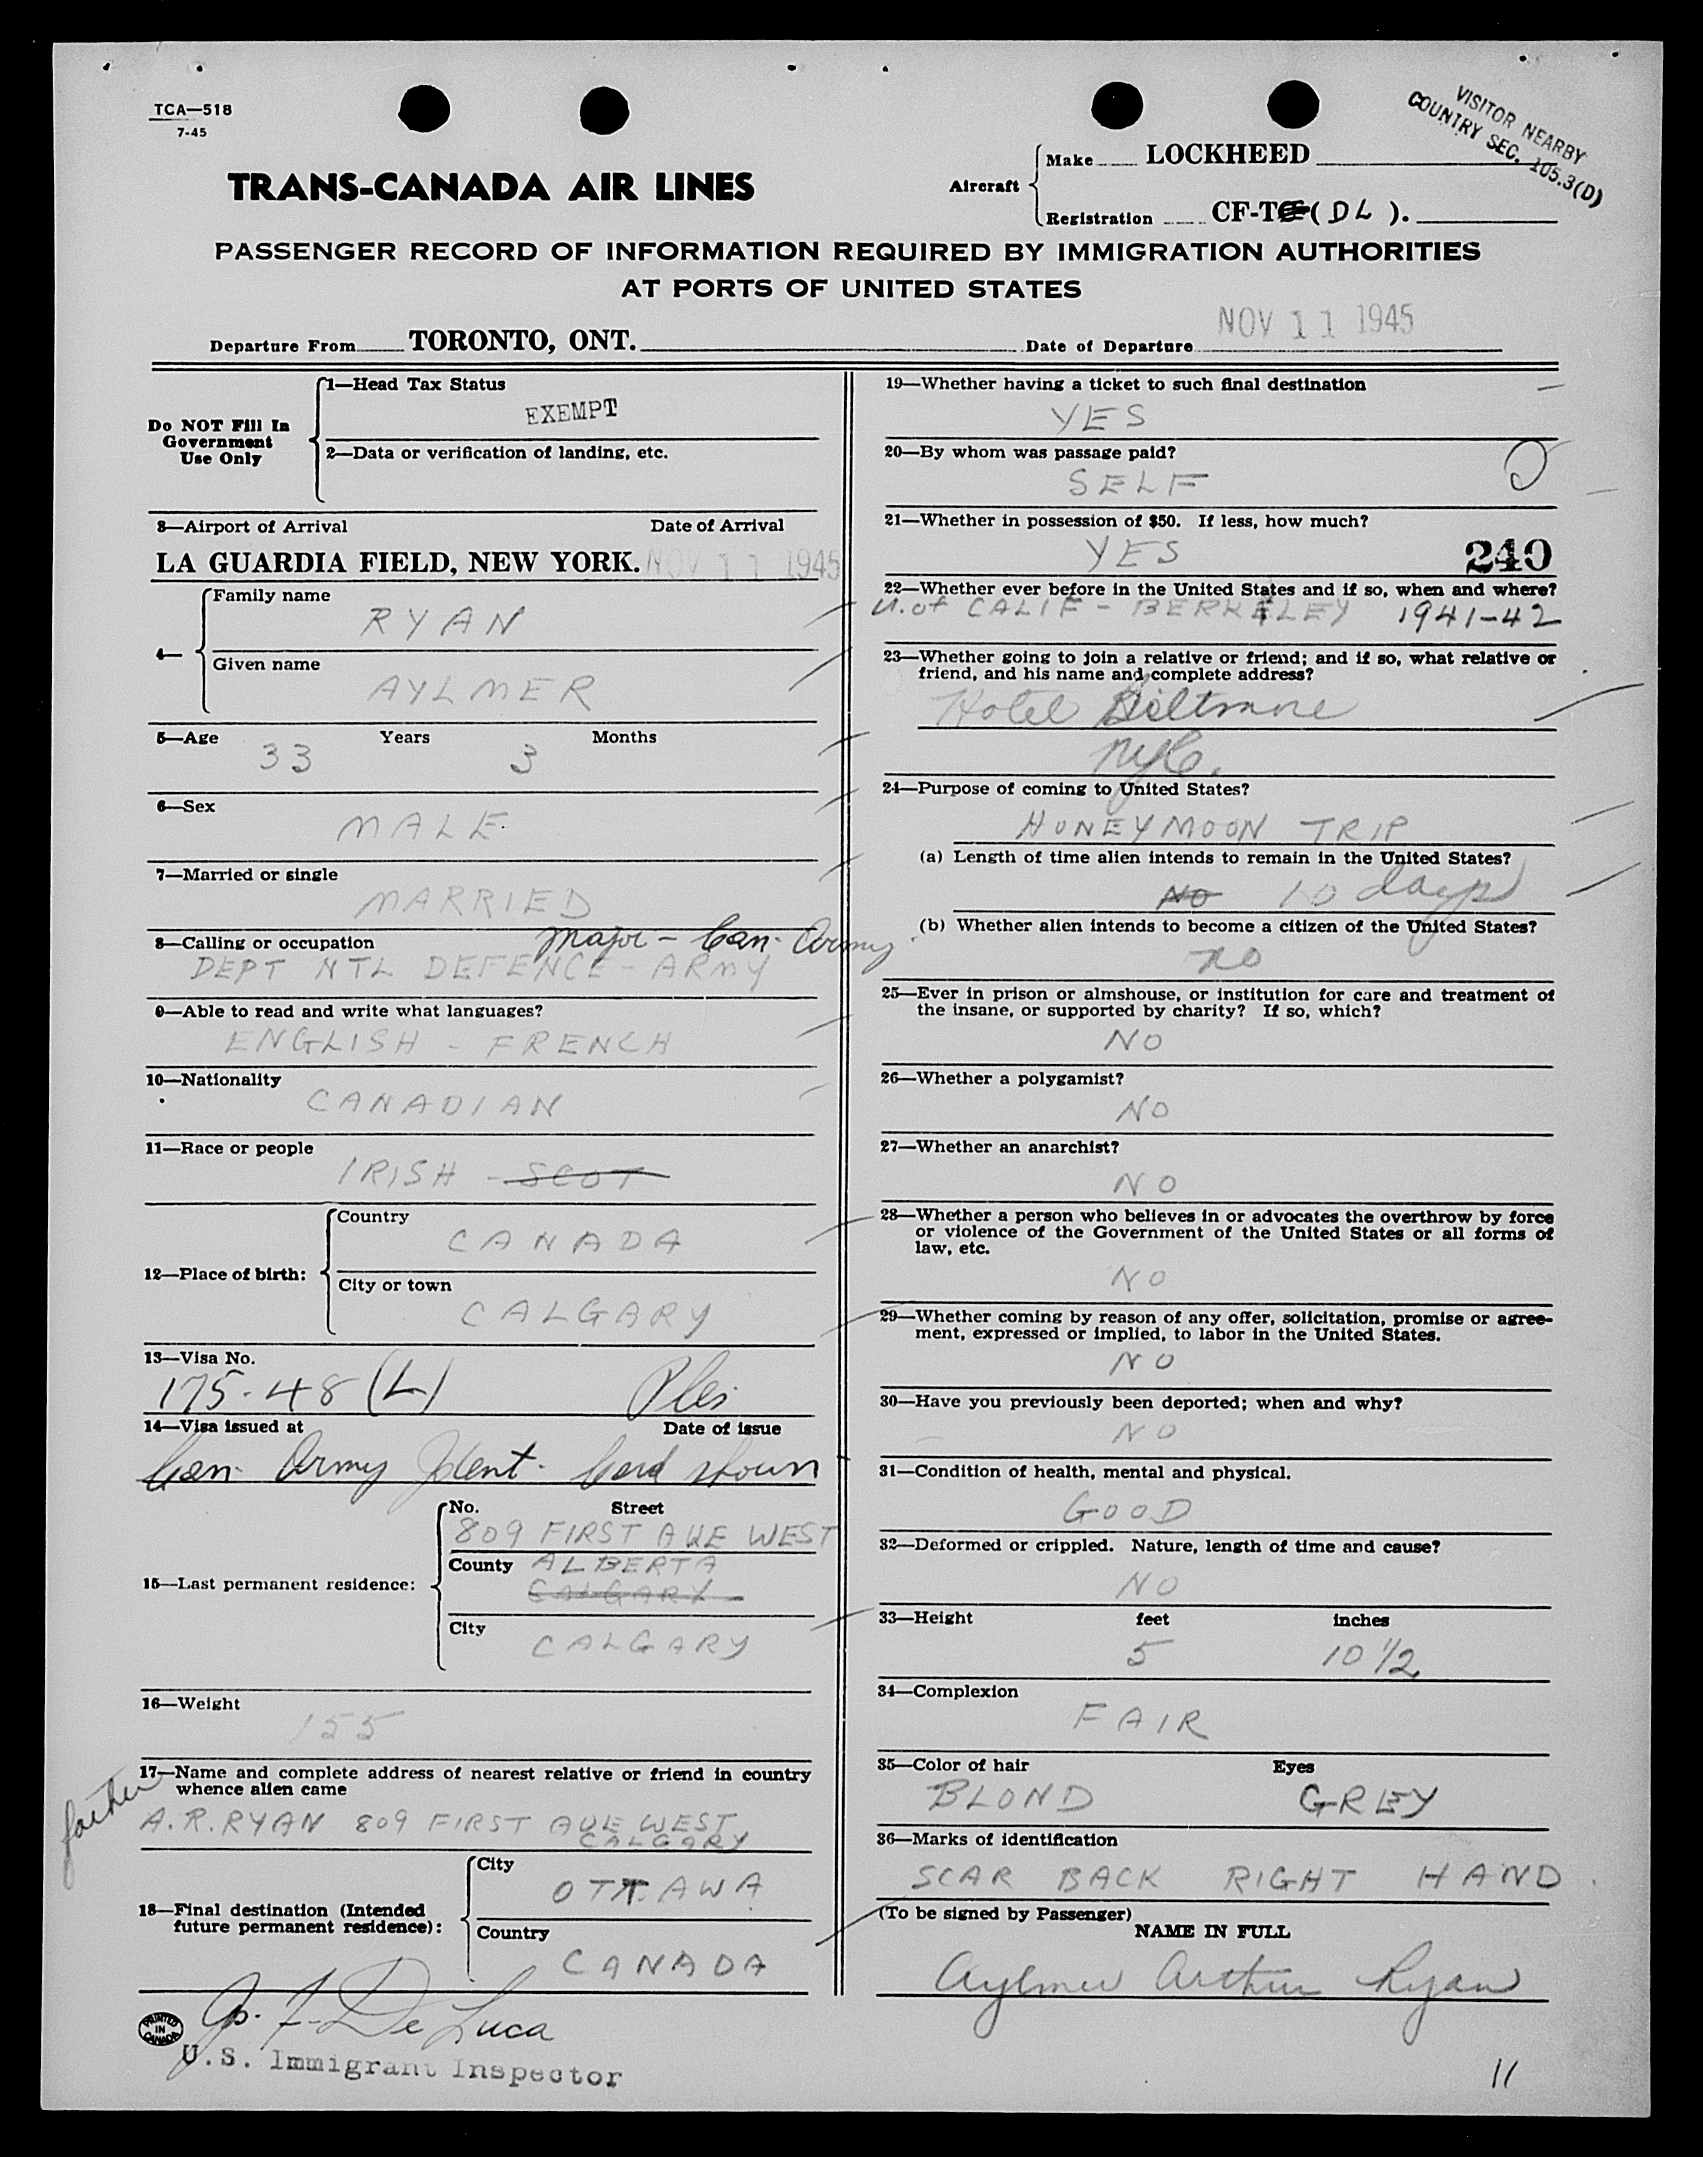 TCA—518
7-45
VISITOR NEARBY
COUNTRY SEC. 105.3(D)
TRANS-CANADA AIR LINES
Aircraft
Make LOCKHEED
Registration CF-T (DL).
PASSENGER RECORD OF INFORMATION REQUIRED BY IMMIGRATION AUTHORITIES
AT PORTS OF UNITED STATES
Departure From TORONTO, ONT. Date of Departure NOV 11 1945
Do NOT Fill In
Government
Use Only
1—Head Tax Status
EXEMPT
2—Data or verification of landing, etc.
3—Airport of Arrival Date of Arrival
LA GUARDIA FIELD, NEW YORK. NOV 11 1945
4—
Family name
RYAN
Given name
AYLMER
5—Age 33 Years 3 Months
6—Sex
MALE
7—Married or single
MARRIED
8—Calling or occupation Major - Can. Army
DEPT NTL DEFENCE - ARMY
9—Able to read and write what languages?
ENGLISH - FRENCH
10—Nationality
CANADIAN
11—Race or people
IRISH - SCOT
12—Place of birth:
Country
CANADA
City or town
CALGARY
13—Visa No.
175.48 (L)
14—Visa issued at Date of issue
Can. Army Ident. Card shown
15—Last permanent residence:
No. Street
809 FIRST AVE WEST
County ALBERTA
CALGARY
City
CALGARY
16—Weight
155
17—Name and complete address of nearest relative or friend in country
whence alien came
father
A.R. RYAN 809 FIRST AVE WEST
CALGARY
18—Final destination (Intended
future permanent residence):
City
OTTAWA
Country
CANADA
De Luca
U.S. Immigrant Inspector
PRINTED
IN
CANADA
19—Whether having a ticket to such final destination
YES
20—By whom was passage paid?
SELF
21—Whether in possession of $50. If less, how much?
YES
240
22—Whether ever before in the United States and if so, when and where?
U. of CALIF - BERKELEY 1941-42
23—Whether going to join a relative or friend; and if so, what relative or
friend, and his name and complete address?
Hotel Biltmore
NYC.
24—Purpose of coming to United States?
HONEYMOON TRIP
(a) Length of time alien intends to remain in the United States?
NO 10 days
(b) Whether alien intends to become a citizen of the United States?
no
25—Ever in prison or almshouse, or institution for care and treatment of
the insane, or supported by charity? If so, which?
NO
26—Whether a polygamist?
NO
27—Whether an anarchist?
NO
28—Whether a person who believes in or advocates the overthrow by force
or violence of the Government of the United States or all forms of
law, etc.
NO
29—Whether coming by reason of any offer, solicitation, promise or agree-
ment, expressed or implied, to labor in the United States.
NO
30—Have you previously been deported; when and why?
NO
31—Condition of health, mental and physical.
GOOD
32—Deformed or crippled. Nature, length of time and cause?
NO
33—Height feet inches
5 10 1/2
34—Complexion
FAIR
35—Color of hair Eyes
BLOND GREY
36—Marks of identification
SCAR BACK RIGHT HAND
(To be signed by Passenger)
NAME IN FULL
Aylmer Arthur Ryan
11